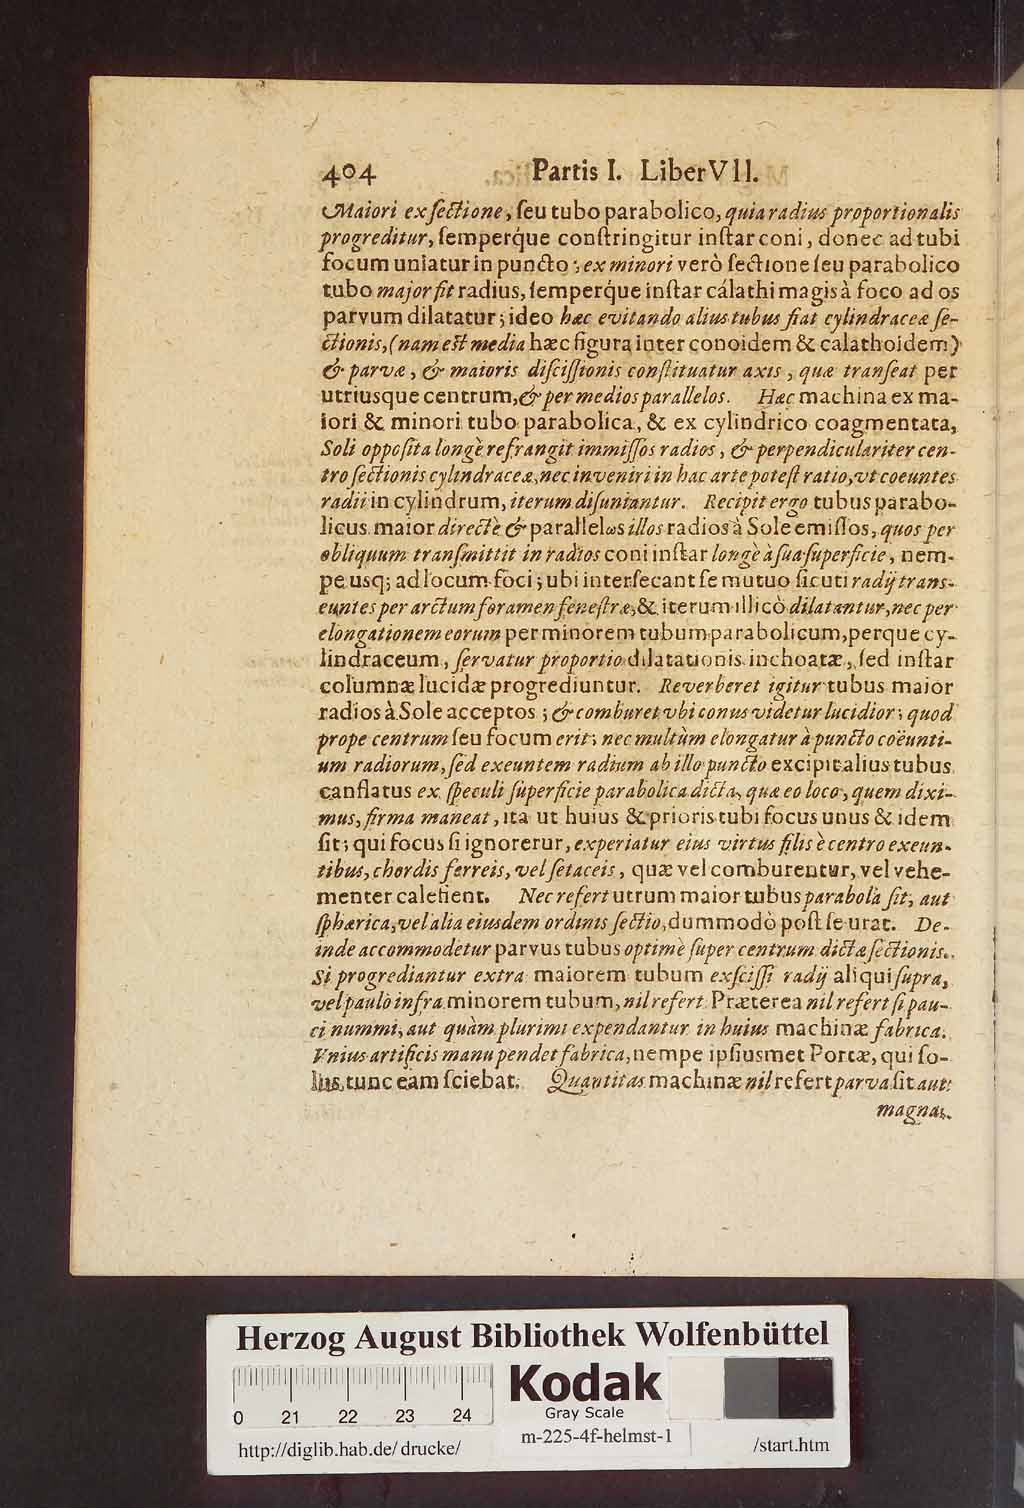 404 Partis I. Liber VII.
Maiori ex ſectione, ſeu tubo parabolico, quia radius proportionalis
progreditur, ſemperq́ue conſtringitur inſtar coni, donec ad tubi
focum uniatur in puncto; ex minori verò ſectione ſeu parabolico
tubo major fit radius, ſemperq́ue inſtar cálathi magis à foco ad os
parvum dilatatur; ideo hæc evitando alius tubus fiat cylindraceæ ſe-
ctionis, (nam eſt media hæc figura inter conoidem & calathoidem)
& parvæ, & maioris diſciſſionis conſtituatur axis, quæ tranſeat per
utriusque centrum, & per medios parallelos. Hæc machina ex ma-
iori & minori tubo parabolica, & ex cylindrico coagmentata,
Soli oppoſita longè refrangit immiſſos radios, & perpendiculariter cen-
tro ſectionis cylindraceæ, nec inveniri in hac arte poteſt ratio, vt coeuntes
radii in cylindrum, iterum diſuniantur. Recipit ergo tubus parabo-
licus maior directè & parallelωs illos radios à Sole emiſſos, quos per
obliquum tranſmittit in radios coni inſtar longè à ſua ſuperficie, nem-
pe usq; ad locum foci; ubi interſecant ſe mutuo ſicuti radij trans-
euntes per arctum foramen feneſtræ, & iterum illicò dilatantur, nec per
elongationem eorum per minorem tubum parabolicum, perque cy-
lindraceum, ſervatur proportio dilatationis inchoatæ, ſed inſtar
columnæ lucidæ progrediuntur. Reverberet igitur tubus maior
radios à Sole acceptos; & comburet vbi conus videtur lucidior; quod
prope centrum ſeu focum erit; nec multùm elongatur à puncto coëunti-
um radiorum, ſed exeuntem radium ab illo puncto excipit alius tubus
canflatus ex ſpeculi ſuperficie parabolica dicta, quæ eo loco, quem dixi-
mus, firma maneat, ita ut huius & prioris tubi focus unus & idem
ſit; qui focus ſi ignoretur, experiatur eius virtus filis è centro exeun-
tibus, chordis ferreis, vel ſetaceis, quæ vel comburentur, vel vehe-
menter calefient. Nec refert utrum maior tubus parabola ſit, aut
ſphærica, vel alia eiusdem ordinis ſectio, dummodò poſt ſe urat. De-
inde accommodetur parvus tubus optimè ſuper centrum dictæ ſectionis.
Si progrediantur extra maiorem tubum exſciſſi radij aliqui ſupra,
vel paulò infra minorem tubum, nil refert Præterea nil refert ſi pau-
ci nummi, aut quàm plurimi expendantur in huius machinæ fabrica.
Vnius artificis manu pendet fabrica, nempe ipſiusmet Portæ, qui ſo-
lus tunc eam ſciebat. Quantitas machinæ nil refert parva ſit aut
magna.
Herzog August Bibliothek Wolfenbüttel
0 21 22 23 24
Kodak
Gray Scale
http://diglib.hab.de/drucke/ m-225-4f-helmst-1 /start.htm